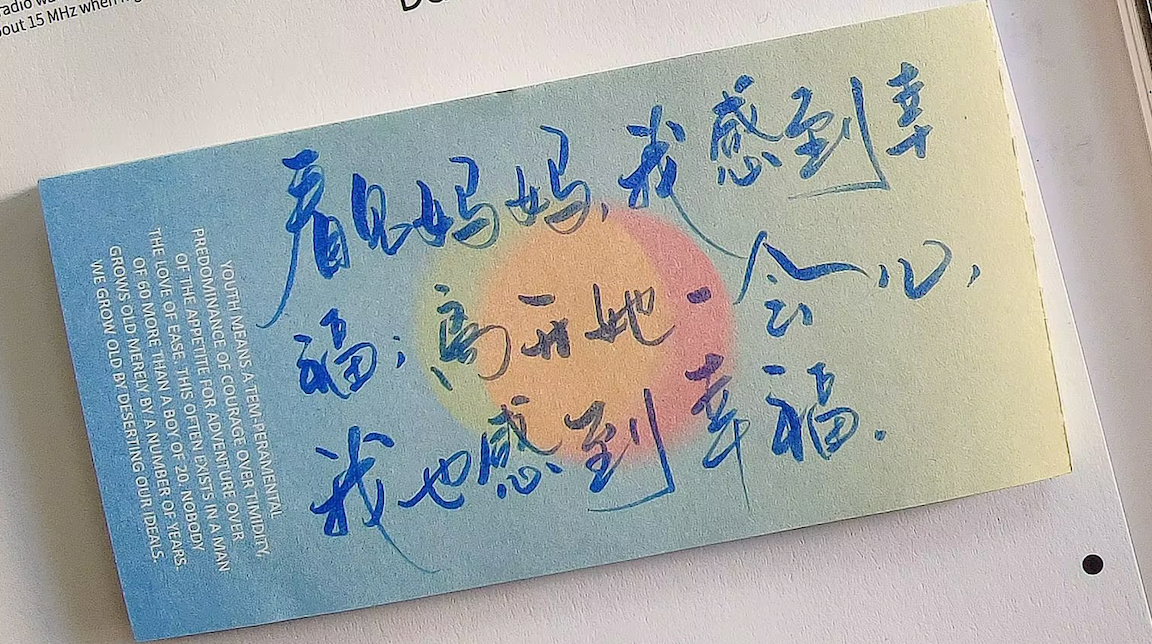 radio wa
out 15 MHz when
看见妈妈,我感到幸
福;离开她一会儿,
我也感到幸福.
YOUTH MEANS A TEM-PERAMENTAL
PREDOMINANCE OF COURAGE OVER TIMIDITY,
OF THE APPETITE FOR ADVENTURE OVER
THE LOVE OF EASE. THIS OFTEN EXISTS IN A MAN
OF 60 MORE THAN A BOY OF 20. NOBODY
GROWS OLD MERELY BY A NUMBER OF YEARS.
WE GROW OLD BY DESERTING OUR IDEALS.